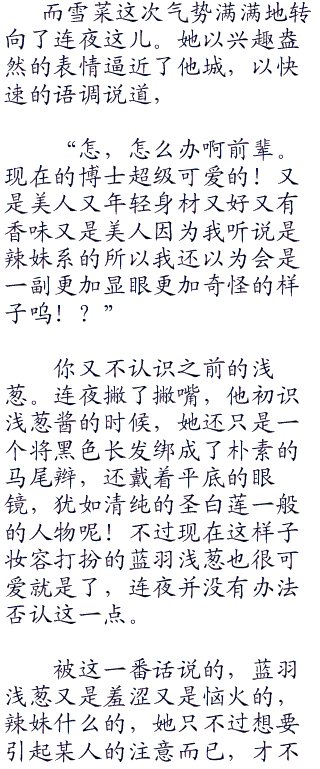 而雪菜这次气势满满地转
向了连夜这儿。她以兴趣盎
然的表情逼近了他城，以快
速的语调说道，
“怎，怎么办啊前辈。
现在的博士超级可爱的！又
是美人又年轻身材又好又有
香味又是美人因为我听说是
辣妹系的所以我还以为会是
一副更加显眼更加奇怪的样
子呜！？”
你又不认识之前的浅
葱。连夜撇了撇嘴，他初识
浅葱酱的时候，她还只是一
个将黑色长发绑成了朴素的
马尾辫，还戴着平底的眼
镜，犹如清纯的圣白莲一般
的人物呢！不过现在这样子
妆容打扮的蓝羽浅葱也很可
爱就是了，连夜并没有办法
否认这一点。
被这一番话说的，蓝羽
浅葱又是羞涩又是恼火的，
辣妹什么的，她只不过想要
引起某人的注意而已，才不